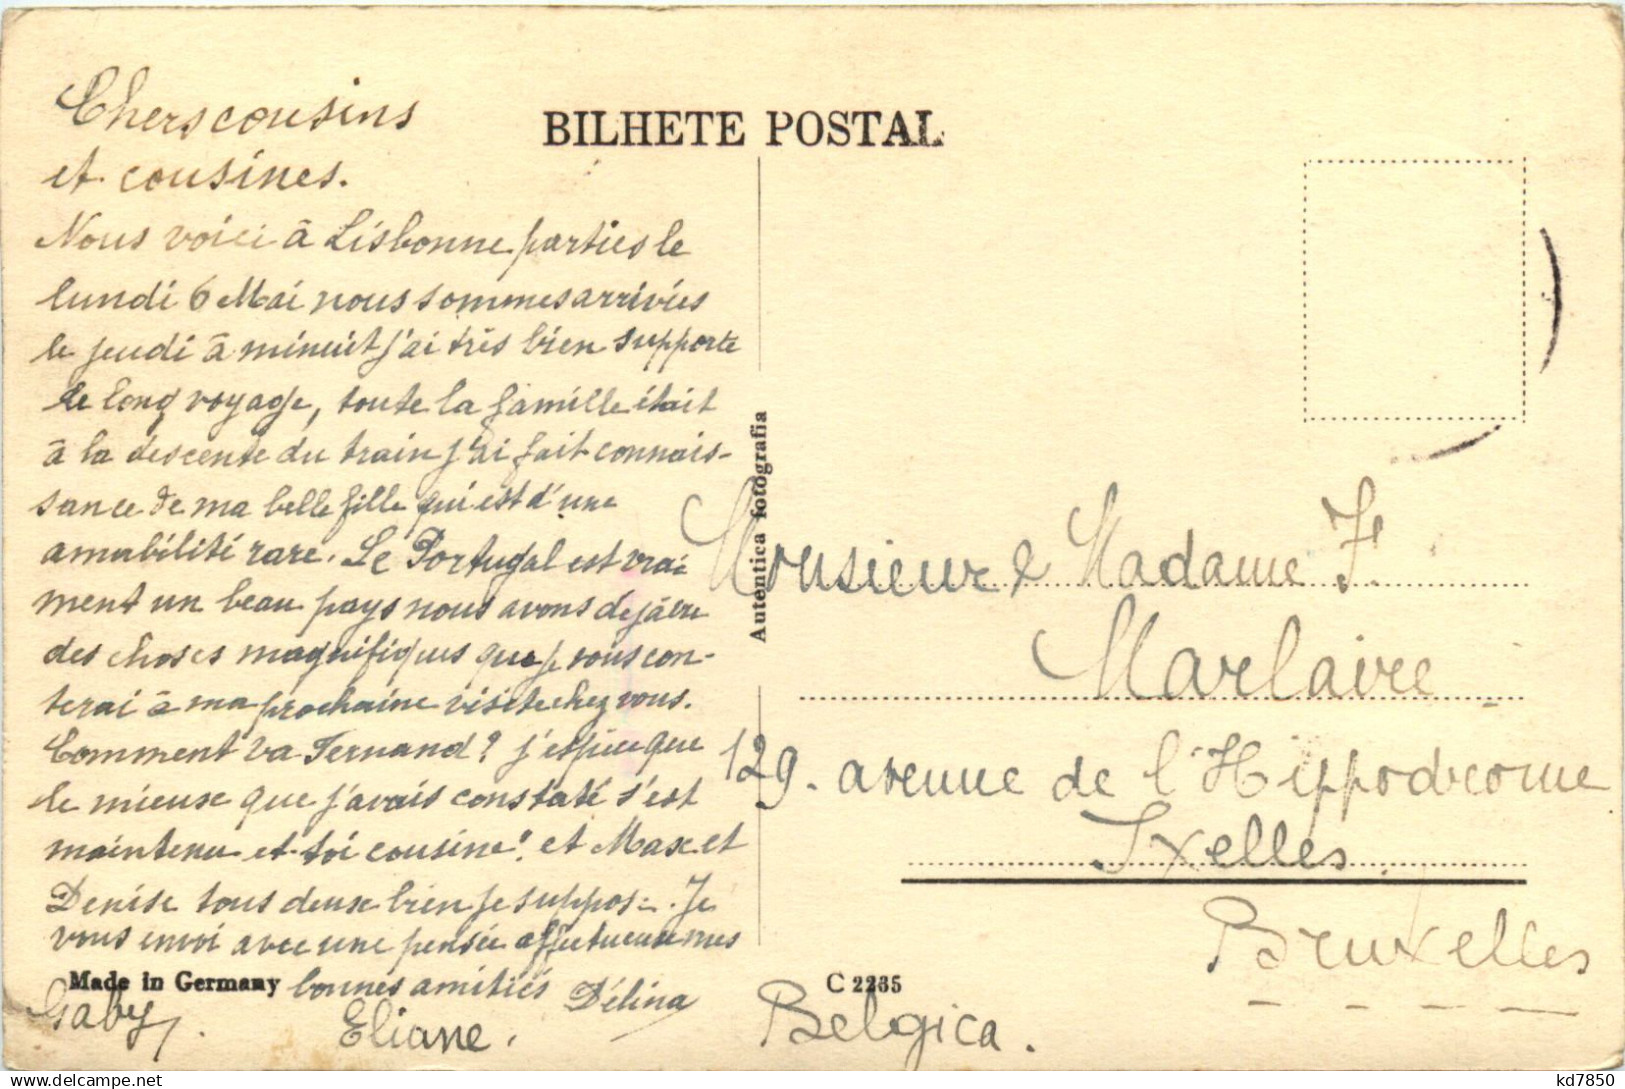 BILHETE POSTAL
Chers cousins
et cousines.
Nous voici à Lisbonne parties le
lundi 6 Mai nous sommes arrivées
le jeudi à minuit j'ai très bien supporte
le long voyage, toute la famille était
à la descente du train j'ai fait connais-
sance de ma belle fille qui est d'une
amabilité rare. Le Portugal est vrai
ment un beau pays nous avons dejà vu
des choses magnifiques que je vous con-
terai à ma prochaine visite chez vous.
Comment va Fernand? j'espère que
le mieux que j'avais constaté s'est
maintenu et toi cousine! et Max et
Denise tous deux bien je suppose. Je
vous envoi avec une pensée affectueuse mes
bonnes amitiés Délina
Gaby.
Eliane.
Made in Germany
Autentica fotografia
C 2235
Monsieur & Madame F.
Marlaire
129. avenue de l'Hippodrome
Ixelles
Bruxelles
Belgica.
kd7850